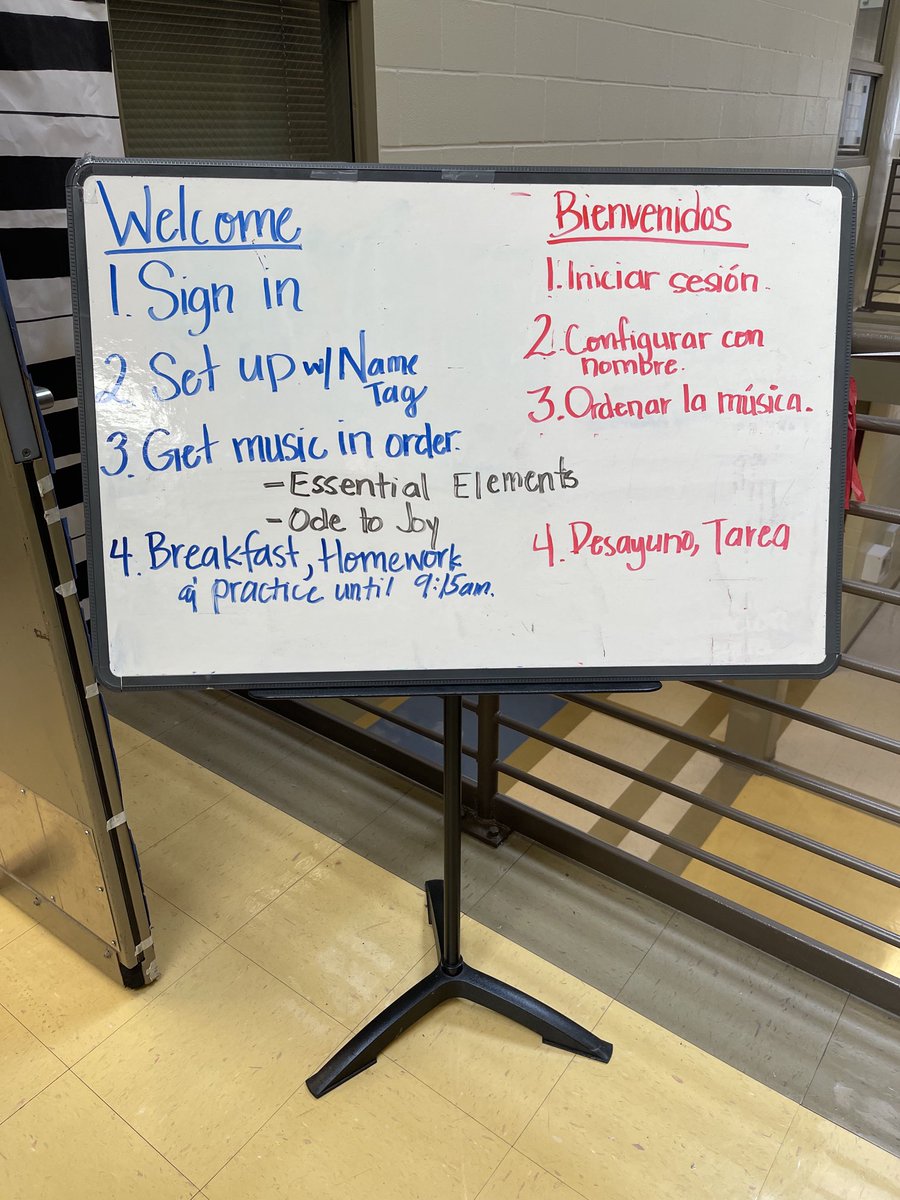 Welcome
1. Sign in
2. Set up w/ Name
Tag
3. Get music in order.
- Essential Elements
- Ode to Joy
4. Breakfast, Homework
& practice until 9:15am.
Bienvenidos
1. Iniciar sesión.
2. Configurar con
nombre.
3. Ordenar la música.
4. Desayuno, Tarea